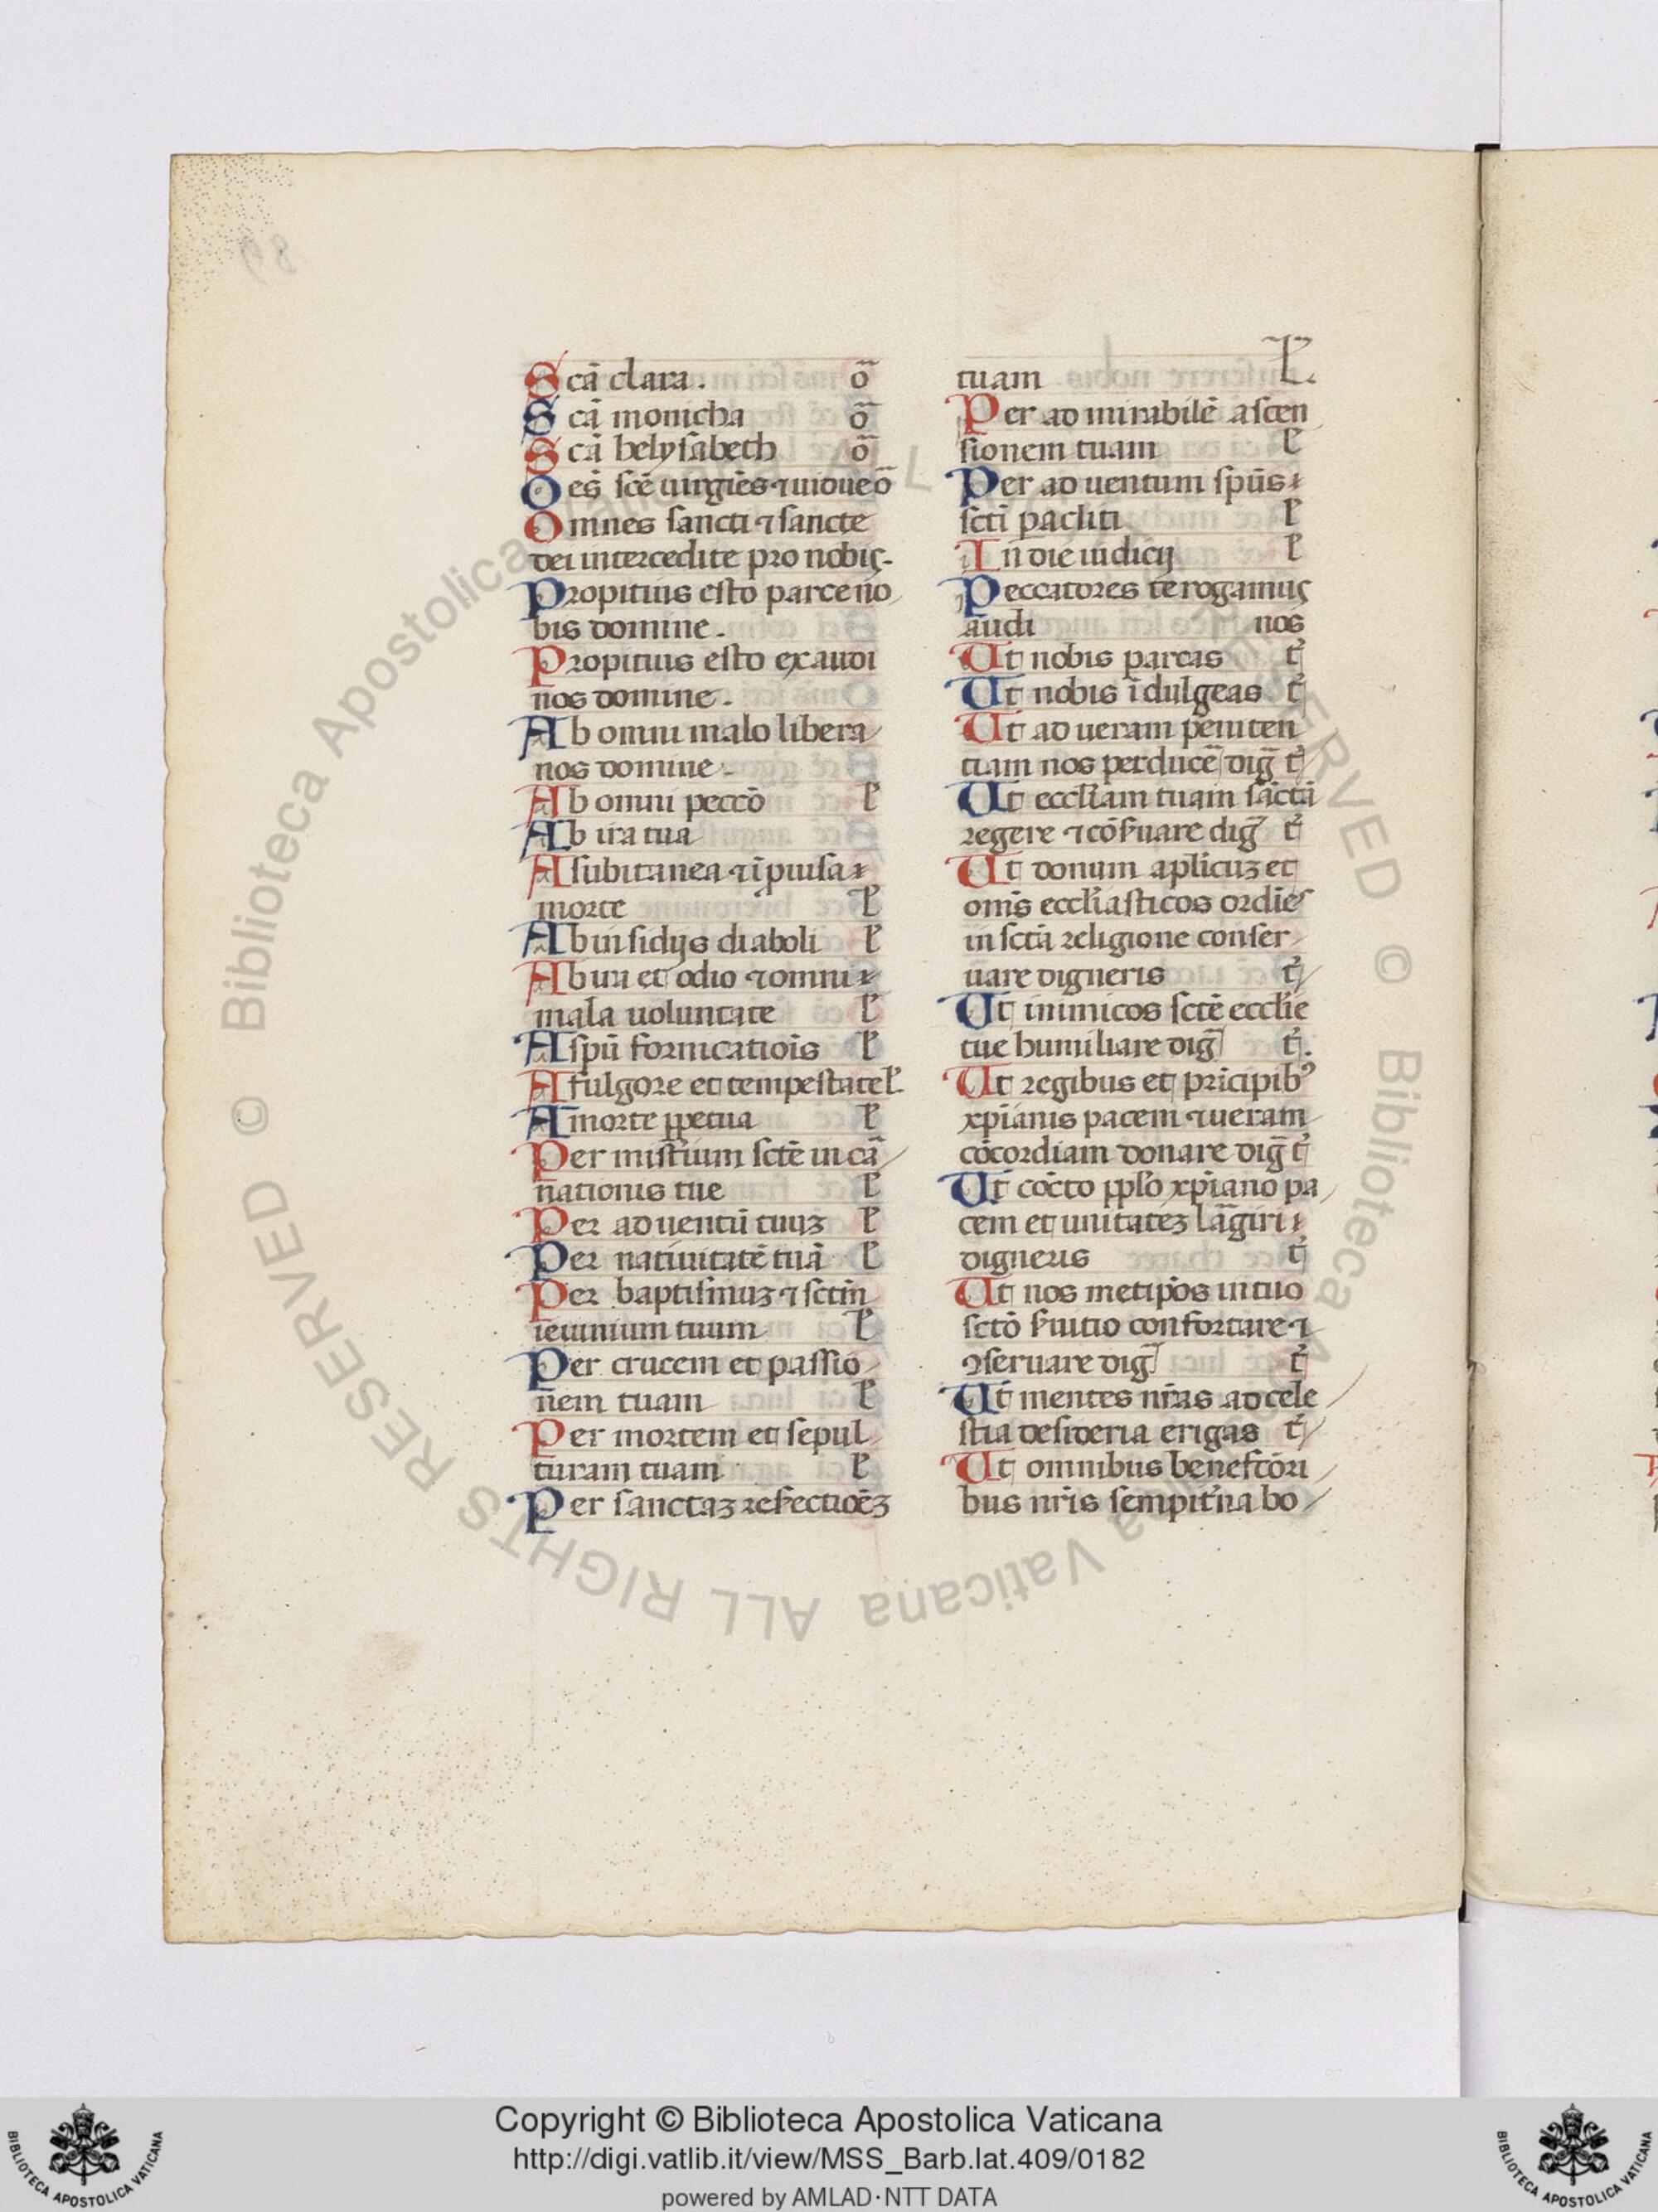 Scā clara. o̅
Scā monicha o̅
Scā helysabech o̅
Oēs scē uirgiēs ⁊ uidue o̅
Omnes sancti ⁊ sancte
dei intercedite pro nobis.
Propitius esto parce no
bis domine.
Propitius esto exaudi
nos domine.
Ab omni malo libera
nos domine.
Ab omni peccō l̄
Ab ira tua
A subitanea ⁊ īpuisa
morte l̄
Ab insidijs diaboli l̄
Ab ira et odio ⁊ omni
mala uoluntate l̄
A spū fornicatiōis l̄
A fulgore et tempestate l̄
A morte ꝑpetua l̄
Per mist'ium sctē in cā
nationis tue l̄
Per aduentū tuuꝫ l̄
Per natiuitatē tuā l̄
Per baptismuꝫ ⁊ sctm̄
ieiunium tuum l̄
Per crucem et passio
nem tuam l̄
Per mortem et sepul
turam tuam l̄
Per sanctaꝫ refectioēꝫ
tuam l̄.
Per admirabilē ascen
sionem tuam l̄
Per aduentum spūs
scti pacliti l̄
In die iudicij l̄
Peccatores te rogamus
audi nos
Ut nobis parcas t̄
Ut nobis īdulgeas t̄
Ut ad ueram peniten
tiam nos perducē diḡ t̄
Ut eccl'iam tuam sāctā
regere ⁊ cōs'uare diḡ t̄
Ut donum apl'icuꝫ et
om̄s eccl'iasticos ordīes
in sctā religione conser
uare digneris t̄
Ut inimicos sctē eccl'ie
tue humiliare diḡ t̄.
Ut regibus et prīcipib⁹
xp̄ianis pacem ⁊ ueram
cōcordiam donare diḡ t̄
Ut cōcto pp̄lo xp̄iano pa
cem et unitateꝫ lāgiri
digneris t̄
Ut nos metip̄os in tuo
sctō s'uitio confortare ⁊
ꝯseruare diḡ t̄
Ut mentes nr̄as ad cele
stia desideria erigas t̄
Ut omnibus benefctōri
bus nr̄is sempit'na bo
Copyright © Biblioteca Apostolica Vaticana
http://digi.vatlib.it/view/MSS_Barb.lat.409/0182
powered by AMLAD·NTT DATA
BIBLIOTECA APOSTOLICA VATICANA
BIBLIOTECA APOSTOLICA VATICANA
© Biblioteca Apostolica Vaticana ALL RIGHTS RESERVED
© Biblioteca Apostolica Vaticana ALL RIGHTS RESERVED